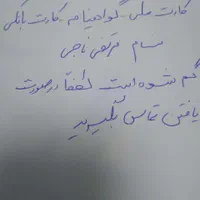 کارت ملی - گواهینامه - کارت بانکی
بنام مرتضی ناجی
گم شده است لطفا در صورت
یافتن تماس بگیرید